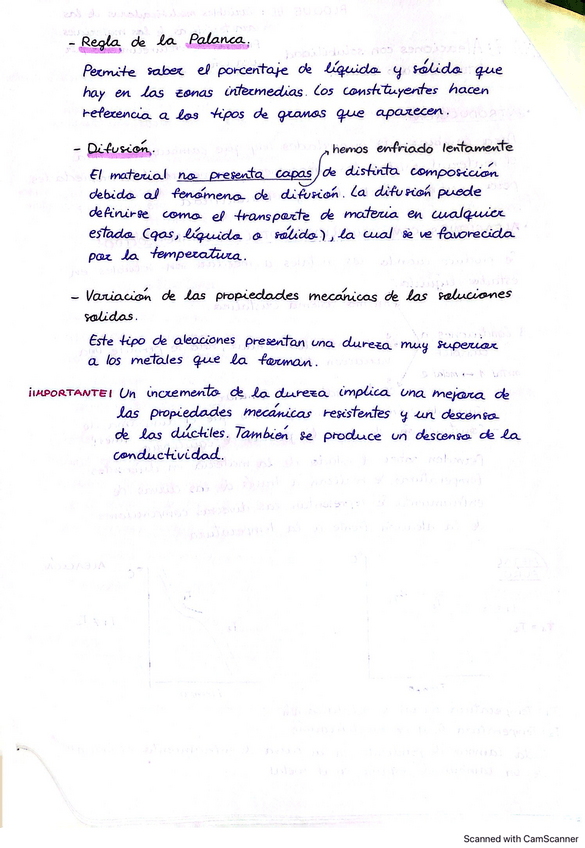 - Regla de la Palanca.
Permite saber el porcentaje de líquido y sólido que
hay en las zonas intermedias. Los constituyentes hacen
referencia a los tipos de granos que aparecen.
- Difusión.
hemos enfriado lentamente
El material no presenta capas de distinta composición
debido al fenómeno de difusión. La difusión puede
definirse como el transporte de materia en cualquier
estado (gas, líquido o sólido), la cual se ve favorecida
por la temperatura.
- Variación de las propiedades mecánicas de las soluciones
solidas.
Este tipo de aleaciones presentan una dureza muy superior
a los metales que la forman.
¡IMPORTANTE! Un incremento de la dureza implica una mejora de
las propiedades mecánicas resistentes y un descenso
de las dúctiles. También se produce un descenso de la
conductividad.
Scanned with CamScanner